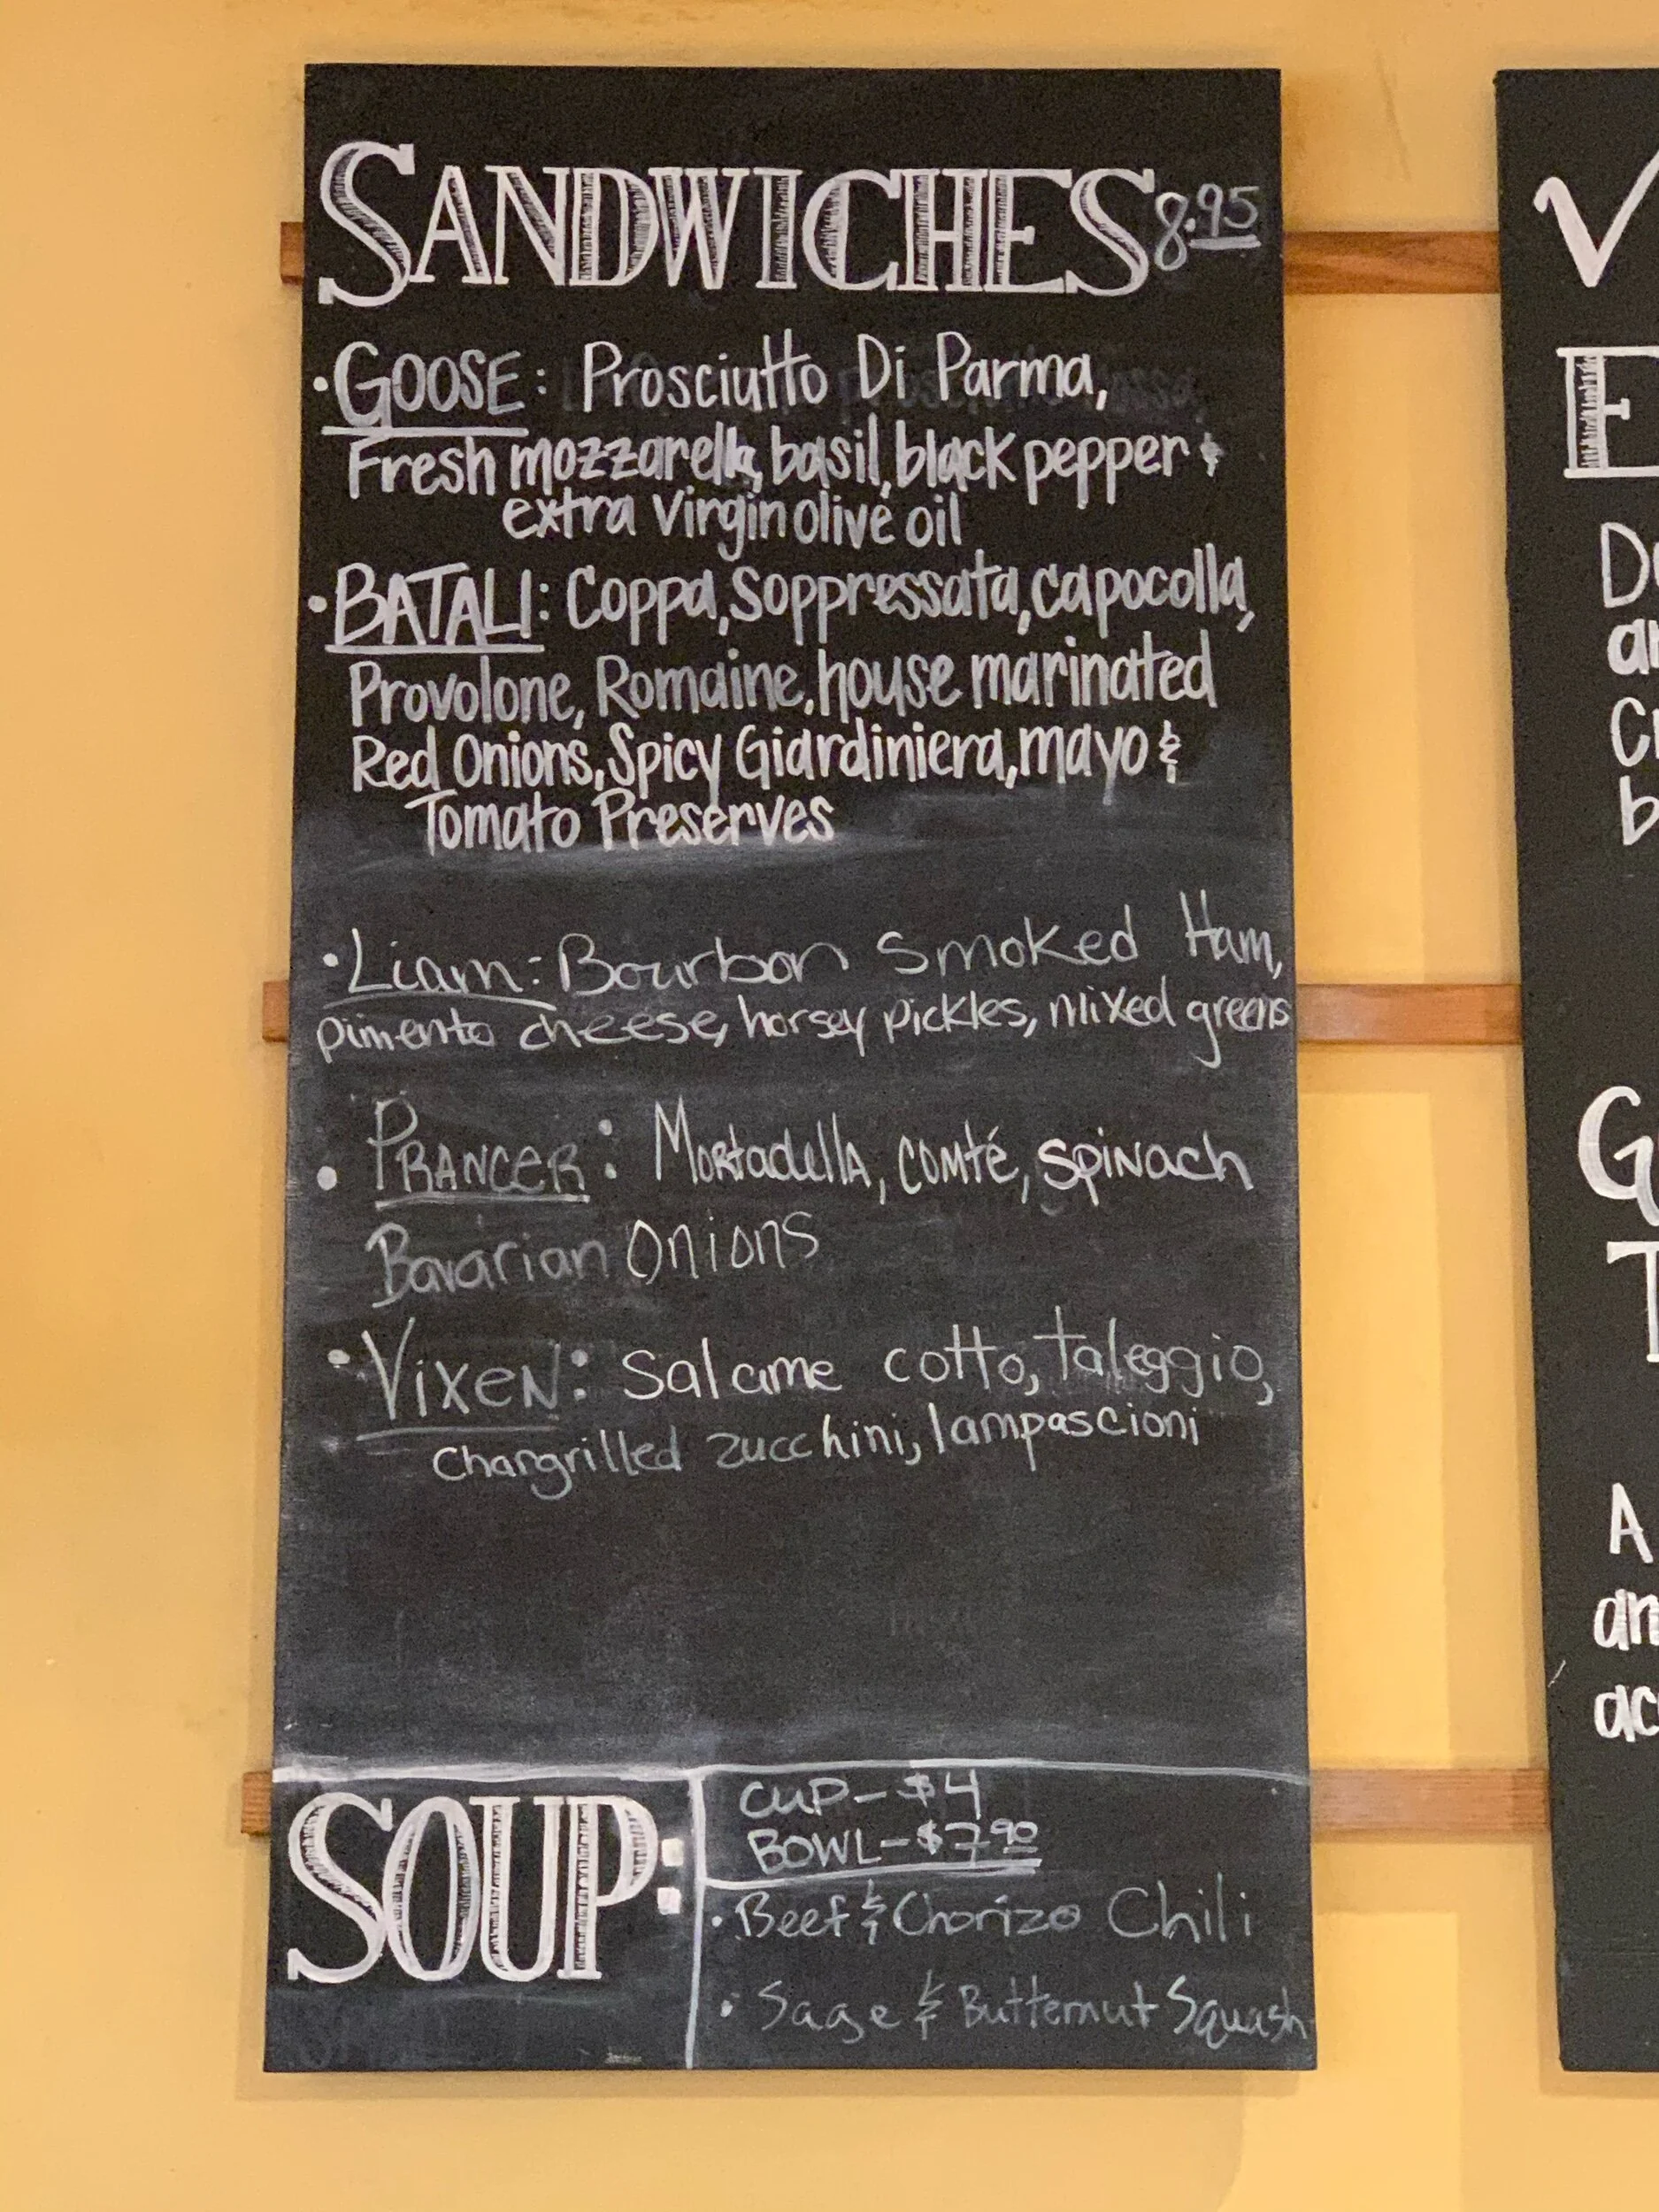 SANDWICHES 8.95
• GOOSE: Prosciutto Di Parma,
Fresh mozzarella, basil, black pepper &
extra virgin olive oil
• BATALI: Coppa, Soppressata, capocolla,
Provolone, Romaine, house marinated
Red Onions, Spicy Giardiniera, mayo &
Tomato Preserves
• Liam: Bourbon Smoked Ham,
pimento cheese, horsey pickles, mixed greens
• PRANCER: Mortadella, comté, spinach
Bavarian Onions
• VIXEN: Salame cotto, taleggio,
Chargrilled zucchini, lampascioni
SOUP:
CUP - $4
BOWL - $7.90
• Beef & Chorizo Chili
• Sage & Butternut Squash
V
E
D
an
Cr
b
G
T
A
an
ac